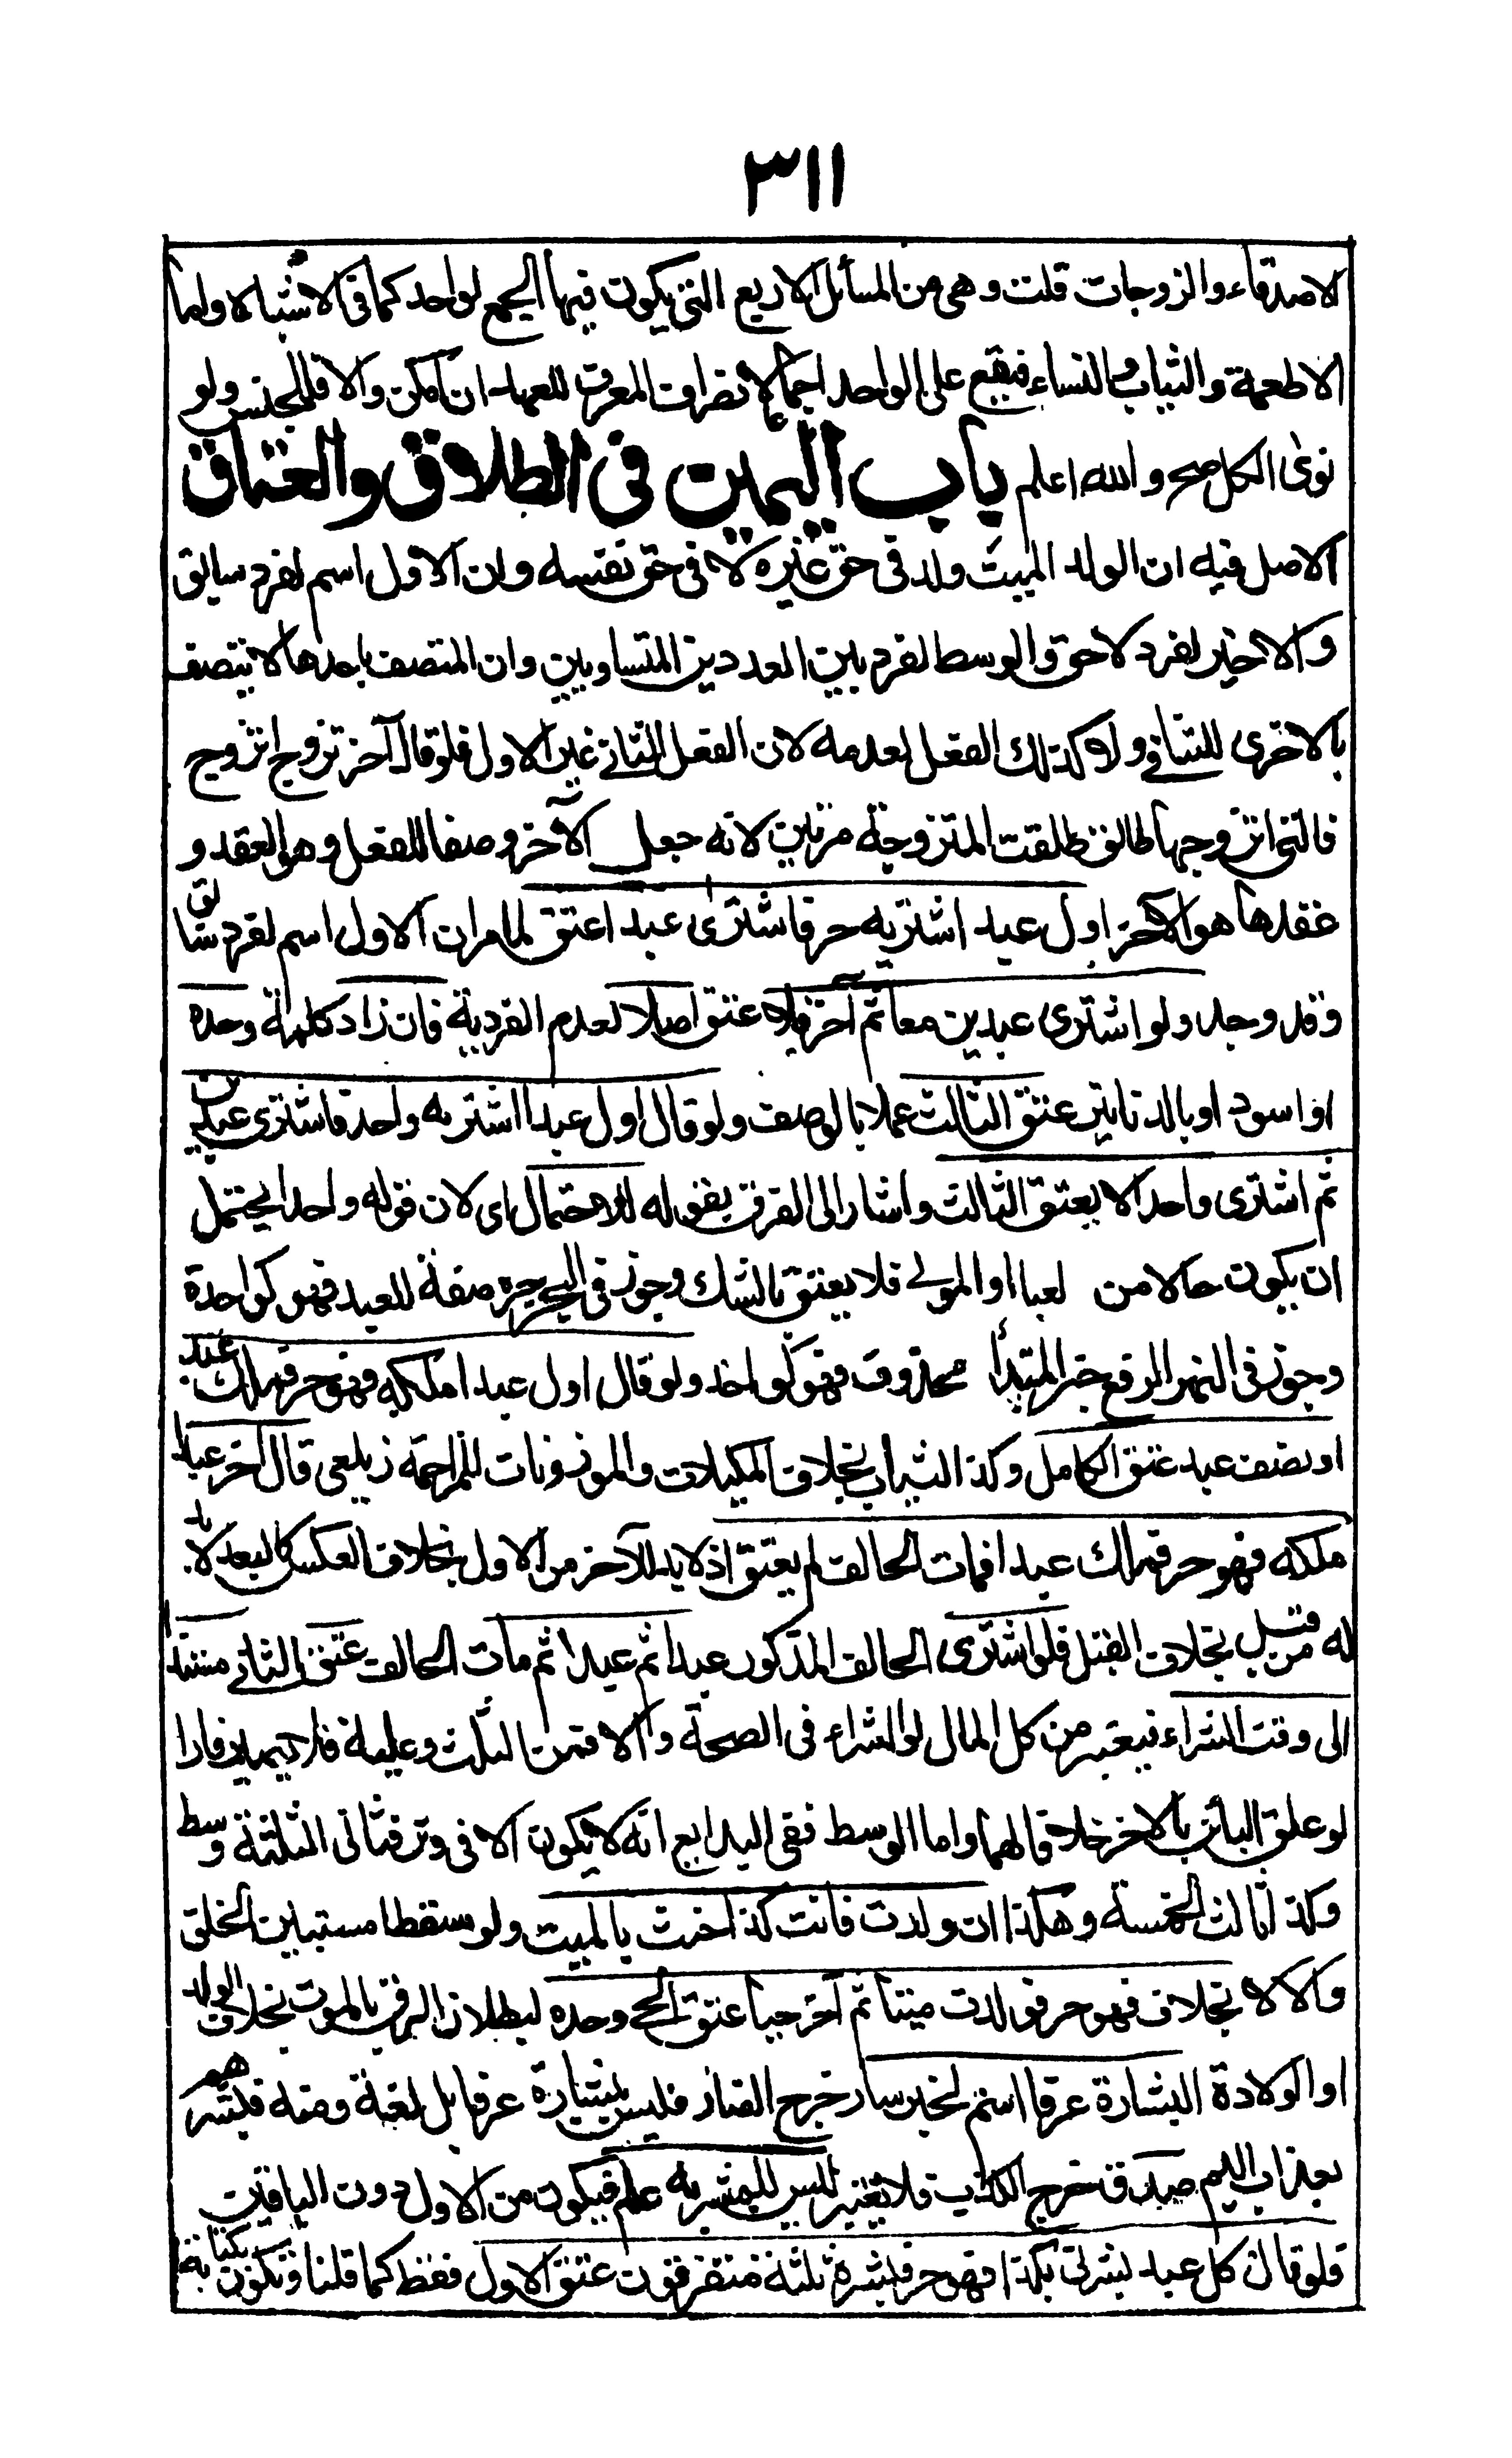 ٣١١
الاصدقاء والزوجات قلت وهى من المسائل الاربع التى يكون فيها الجمع لواحد كما فى الاشباه واما
الاطعمة والثياب والنساء فيقع على الواحد اجماعا لانصراف المعرف للعهد ان امكن والا فللجنس ولو
نوى الكل صح والله اعلم باب اليمين فى الطلاق والعتاق
الاصل فيه ان الولد الميت ولد فى حق غيره لا فى حق نفسه وان الاول اسم لفرد سابق
والاخير لفرد لاحق والوسط لفرد بين العددين المتساويين وان المتصف باحدها لا يتصف
بالاخرى للتنافى ولا كذلك الفعل لعدمه لان الفعل الثانى غير الاول فلو قال آخر تزوج اتزوج
فالتى اتزوجها طالق طلقت المتزوجة مرتين لانه جعل الآخر وصفا للفعل وهو العقد و
عقدها هو الآخر اول عبد اشتريه حر فاشترى عبدا عتق لما مر ان الاول اسم لفرد سابق
وقد وجد ولو اشترى عبدين معا ثم آخر فلا عتق اصلا لعدم الفردية فان زاد كلمة وحده
او اسود او بالدنانير عتق الثالث عملا بالوصف ولو قال اول عبد اشتريه واحد فاشترى عبدين
ثم اشترى واحدا لا يعتق الثالث واشار الى الفرق بقوله للاحتمال اى لان قوله واحدا يحتمل
ان يكون حالا من لعبد او المولى فلا يعتق بالشك وجوز فى البحر جره صفة للعبد فهو كوحده
وجوز فى النهر الرفع خبر المبتدأ محذوف فهو كواحد ولو قال اول عبد املكه فهو حر فملك عبدا
او نصف عبد عتق الكامل وكذا الثياب بخلاف المكيلات والموزونات للمزاحمة زيلعى قال آخر عبد
ملكه فهو حر فملك عبدا فمات الحالف لم يعتق اذ لا بد للآخر من الاول بخلاف العكس كالبعد لا بد
له من قبل بخلاف القبل فلو اشترى الحالف المذكور عبدا ثم عبدا ثم مات الحالف عتق الثانى مستندا
الى وقت الشراء فيعتبر من كل المال لو الشراء فى الصحة والا فمن الثلث وعليه فلا يصير فارا
لو علق البائن بالاخر خلافا لهما واما الوسط ففى البدايع انه لا يكون الا فى وتر فثانى الثلثة وسط
وكذا ثالث الخمسة وهكذا ان ولدت فانت كذا حنث بالميت ولو سقطا مستبين الخلق
والا لا بخلاف فهو حر فولدت ميتا ثم آخر حيا عتق الحى وحده لبطلان الرق بالموت بخلاف الولد
او الولادة البشارة عرفا اسم لخبر سار خرج الضار فليس ببشارة عرفا بل لغة ومنه فبشرهم
بعذاب اليم صدق خرج الكذب فلا يعتبر ليس للمبشر به علم فيكون من الاول دون الباقين
فلو قال كل عبد بشرنى بكذا فهو حر فبشره ثلثة متفرقون عتق الاول فقط كما قلنا وتكون بكتابة